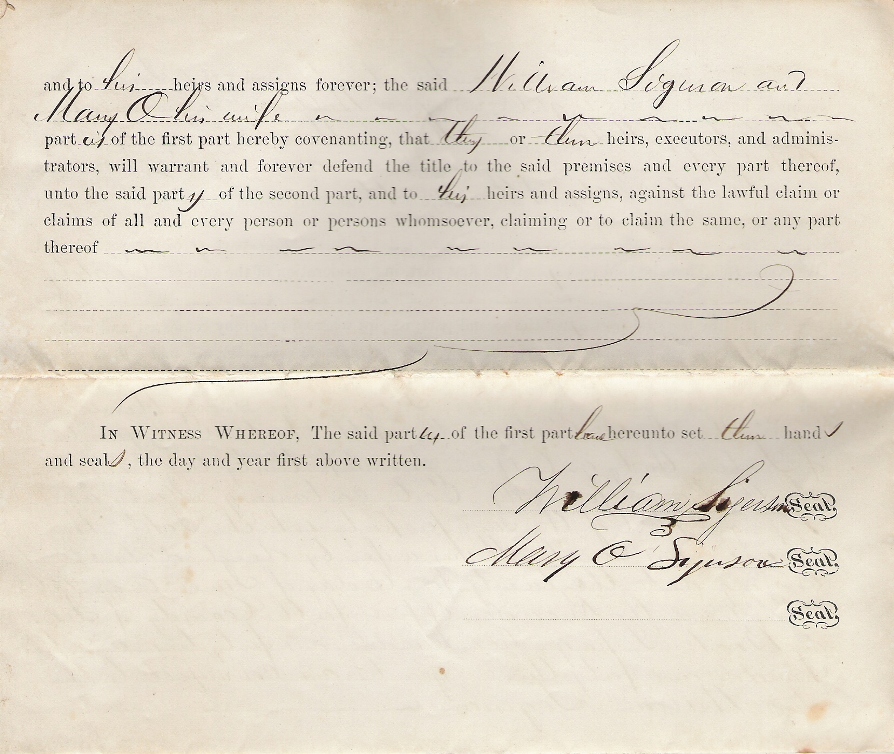 and to his heirs and assigns forever; the said William Sigerson and
Mary O his wife
parties of the first part hereby covenanting, that they or their heirs, executors, and adminis-
trators, will warrant and forever defend the title to the said premises and every part thereof,
unto the said party of the second part, and to his heirs and assigns, against the lawful claim or
claims of all and every person or persons whomsoever, claiming or to claim the same, or any part
thereof
IN WITNESS WHEREOF, The said parties of the first part have hereunto set their hands
and seals, the day and year first above written.
William Sigerson Seal.
Mary O Sigerson Seal.
Seal.